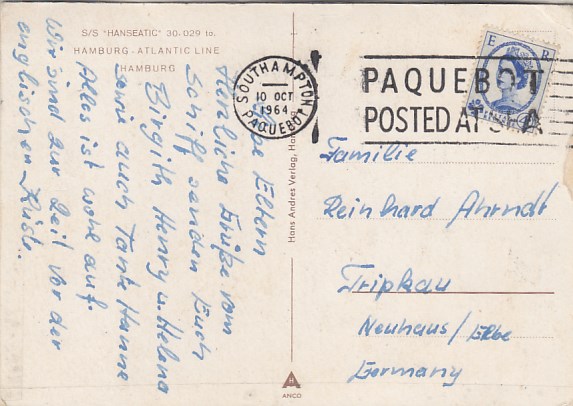 S/S "HANSEATIC" 30.029 to.
HAMBURG-ATLANTIC LINE
HAMBURG
Eltern
Herrliche Grüße vom
Schiff senden Euch
Birgith Henry u. Helena
sowie auch Tante Hanne
Alles ist wohl auf.
Wir sind zur Zeit vor der
englischen Küste.
Hans Andres Verlag,
SOUTHAMPTON
10 OCT
1964
PAQUEBOT
PAQUEBOT
POSTED AT SEA
E R
Familie
Reinhard Ahrndt
Tripkau
Neuhaus/Elbe
Germany
H
ANCO